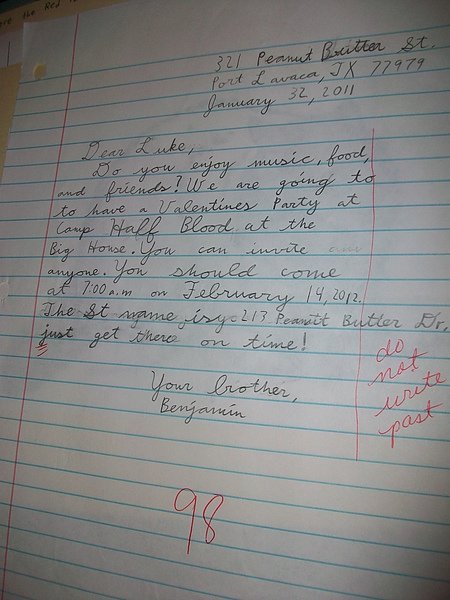 re the Red
321 Peanut Butter St.
Port Lavaca, TX 77979
January 32, 2011
Dear Luke,
Do you enjoy music, food,
and friends? We are going to
to have a Valentines Party at
Camp Half Blood at the
Big House. You can invite
anyone. You should come
at 7:00 a.m on February 14, 2012.
The St name is 213 Peanut Butter Dr.
just get there on time!
Your brother,
Benjamin
do
not
write
past
98